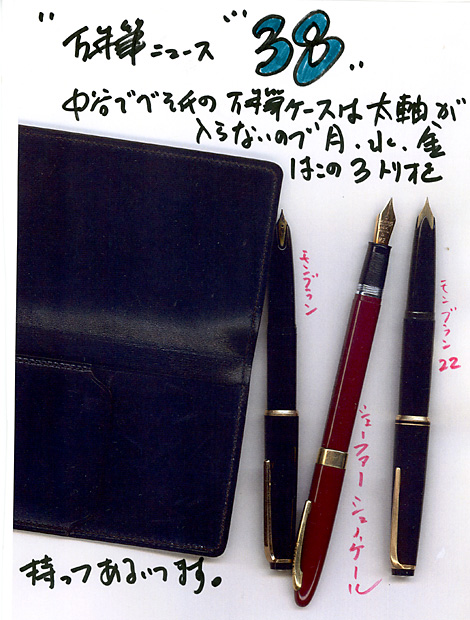 "万年筆ニュース" 38"
中谷でべそ氏の万年筆ケースは太軸が
入らないので月、水、金
はこの3トリオを
モンブラン
シェーファー シュノーケル
モンブラン 22
持ってあるいてます。